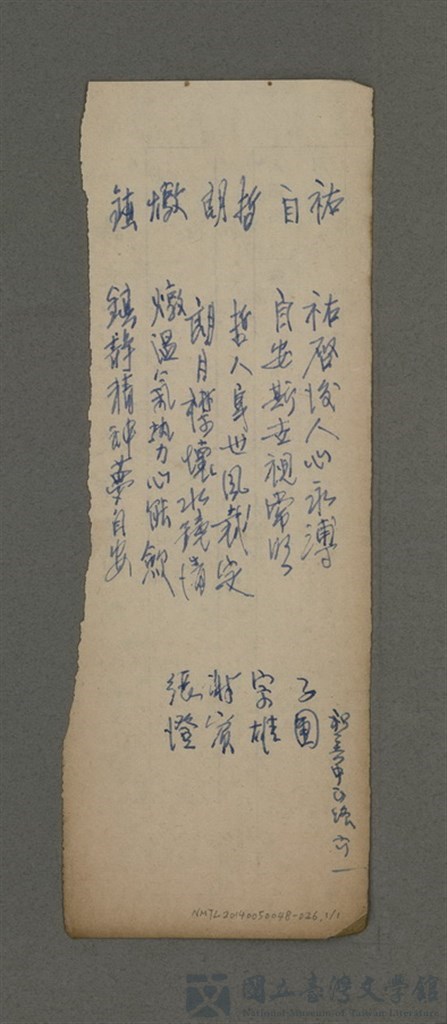 祐 祐啓後人心永溥
自 自安斯世視常明
哲 哲人身世風裁定
朗 朗月襟懷水鏡情
燉 燉溫氣熱心能飲
鎮 鎮靜精神夢自安
子圃
字雄
謝賓
張燈
NMTL20140050048-026.1/1
國立臺灣文學館
National Museum of Taiwan Literature